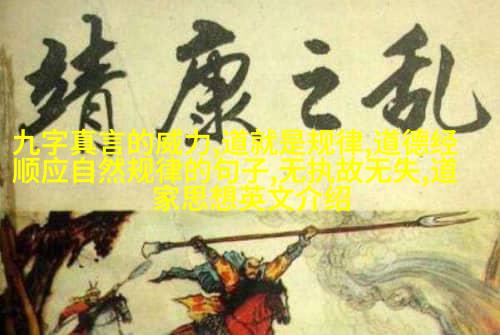 靖康之乱
九字真言的威力,道就是规律,道德经
顺应自然规律的句子,无执故无失,道
家思想英文介绍